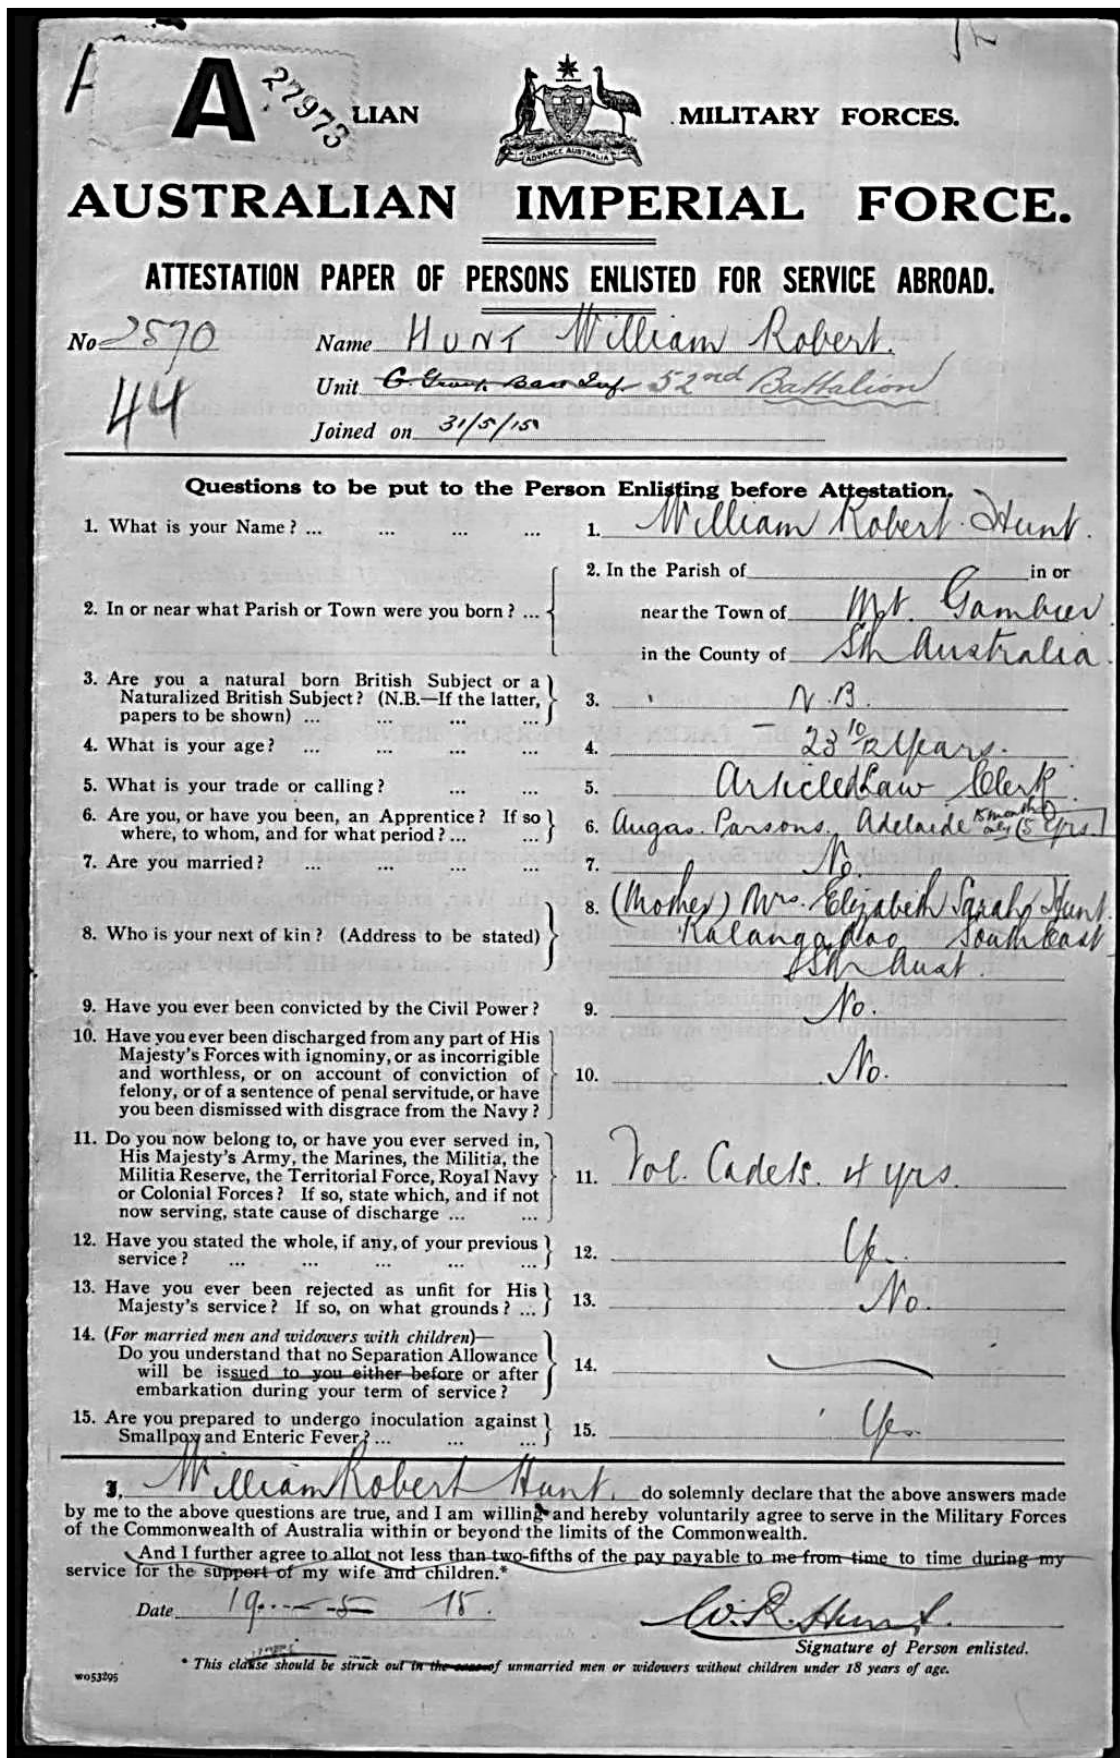 A 27973
LIAN MILITARY FORCES.
ADVANCE AUSTRALIA
AUSTRALIAN IMPERIAL FORCE.
ATTESTATION PAPER OF PERSONS ENLISTED FOR SERVICE ABROAD.
No 2570 Name HUNT William Robert.
44 Unit G. Group Base Inf 52nd Battalion
Joined on 31/5/15
Questions to be put to the Person Enlisting before Attestation.
1. What is your Name? ... ... ... ... 1. William Robert Hunt.
2. In or near what Parish or Town were you born? ... 2. In the Parish of in or
near the Town of Mt. Gambier
in the County of Sth Australia.
3. Are you a natural born British Subject or a
Naturalized British Subject? (N.B.—If the latter, 3. N.B.
papers to be shown) ... ... ... ...
4. What is your age? ... ... ... ... 4. 23 10/12 Years.
5. What is your trade or calling? ... ... 5. Articled Law Clerk.
6. Are you, or have you been, an Apprentice? If so
where, to whom, and for what period? ... ... 6. Angas Parsons, Adelaide months only (5 yrs.)
7. Are you married? ... ... ... ... 7. No.
8. Who is your next of kin? (Address to be stated) 8. (Mother) Mrs. Elizabeth Sarah Hunt.
Kalangadoo South East
Sth Aust.
9. Have you ever been convicted by the Civil Power? 9. No.
10. Have you ever been discharged from any part of His
Majesty's Forces with ignominy, or as incorrigible
and worthless, or on account of conviction of 10. No.
felony, or of a sentence of penal servitude, or have
you been dismissed with disgrace from the Navy?
11. Do you now belong to, or have you ever served in,
His Majesty's Army, the Marines, the Militia, the
Militia Reserve, the Territorial Force, Royal Navy 11. Vol. Cadets. 4 yrs.
or Colonial Forces? If so, state which, and if not
now serving, state cause of discharge ... ...
12. Have you stated the whole, if any, of your previous
service? ... ... ... ... ... 12. Yes.
13. Have you ever been rejected as unfit for His
Majesty's service? If so, on what grounds? ... 13. No.
14. (For married men and widowers with children)—
Do you understand that no Separation Allowance
will be issued to you either before or after 14.
embarkation during your term of service?
15. Are you prepared to undergo inoculation against
Smallpox and Enteric Fever? ... ... ... 15. Yes.
I, William Robert Hunt. do solemnly declare that the above answers made
by me to the above questions are true, and I am willing and hereby voluntarily agree to serve in the Military Forces
of the Commonwealth of Australia within or beyond the limits of the Commonwealth.
And I further agree to allot not less than two-fifths of the pay payable to me from time to time during my
service for the support of my wife and children.*
Date 19 - 5 15. W. R. Hunt.
Signature of Person enlisted.
* This clause should be struck out in the case of unmarried men or widowers without children under 18 years of age.
W053295